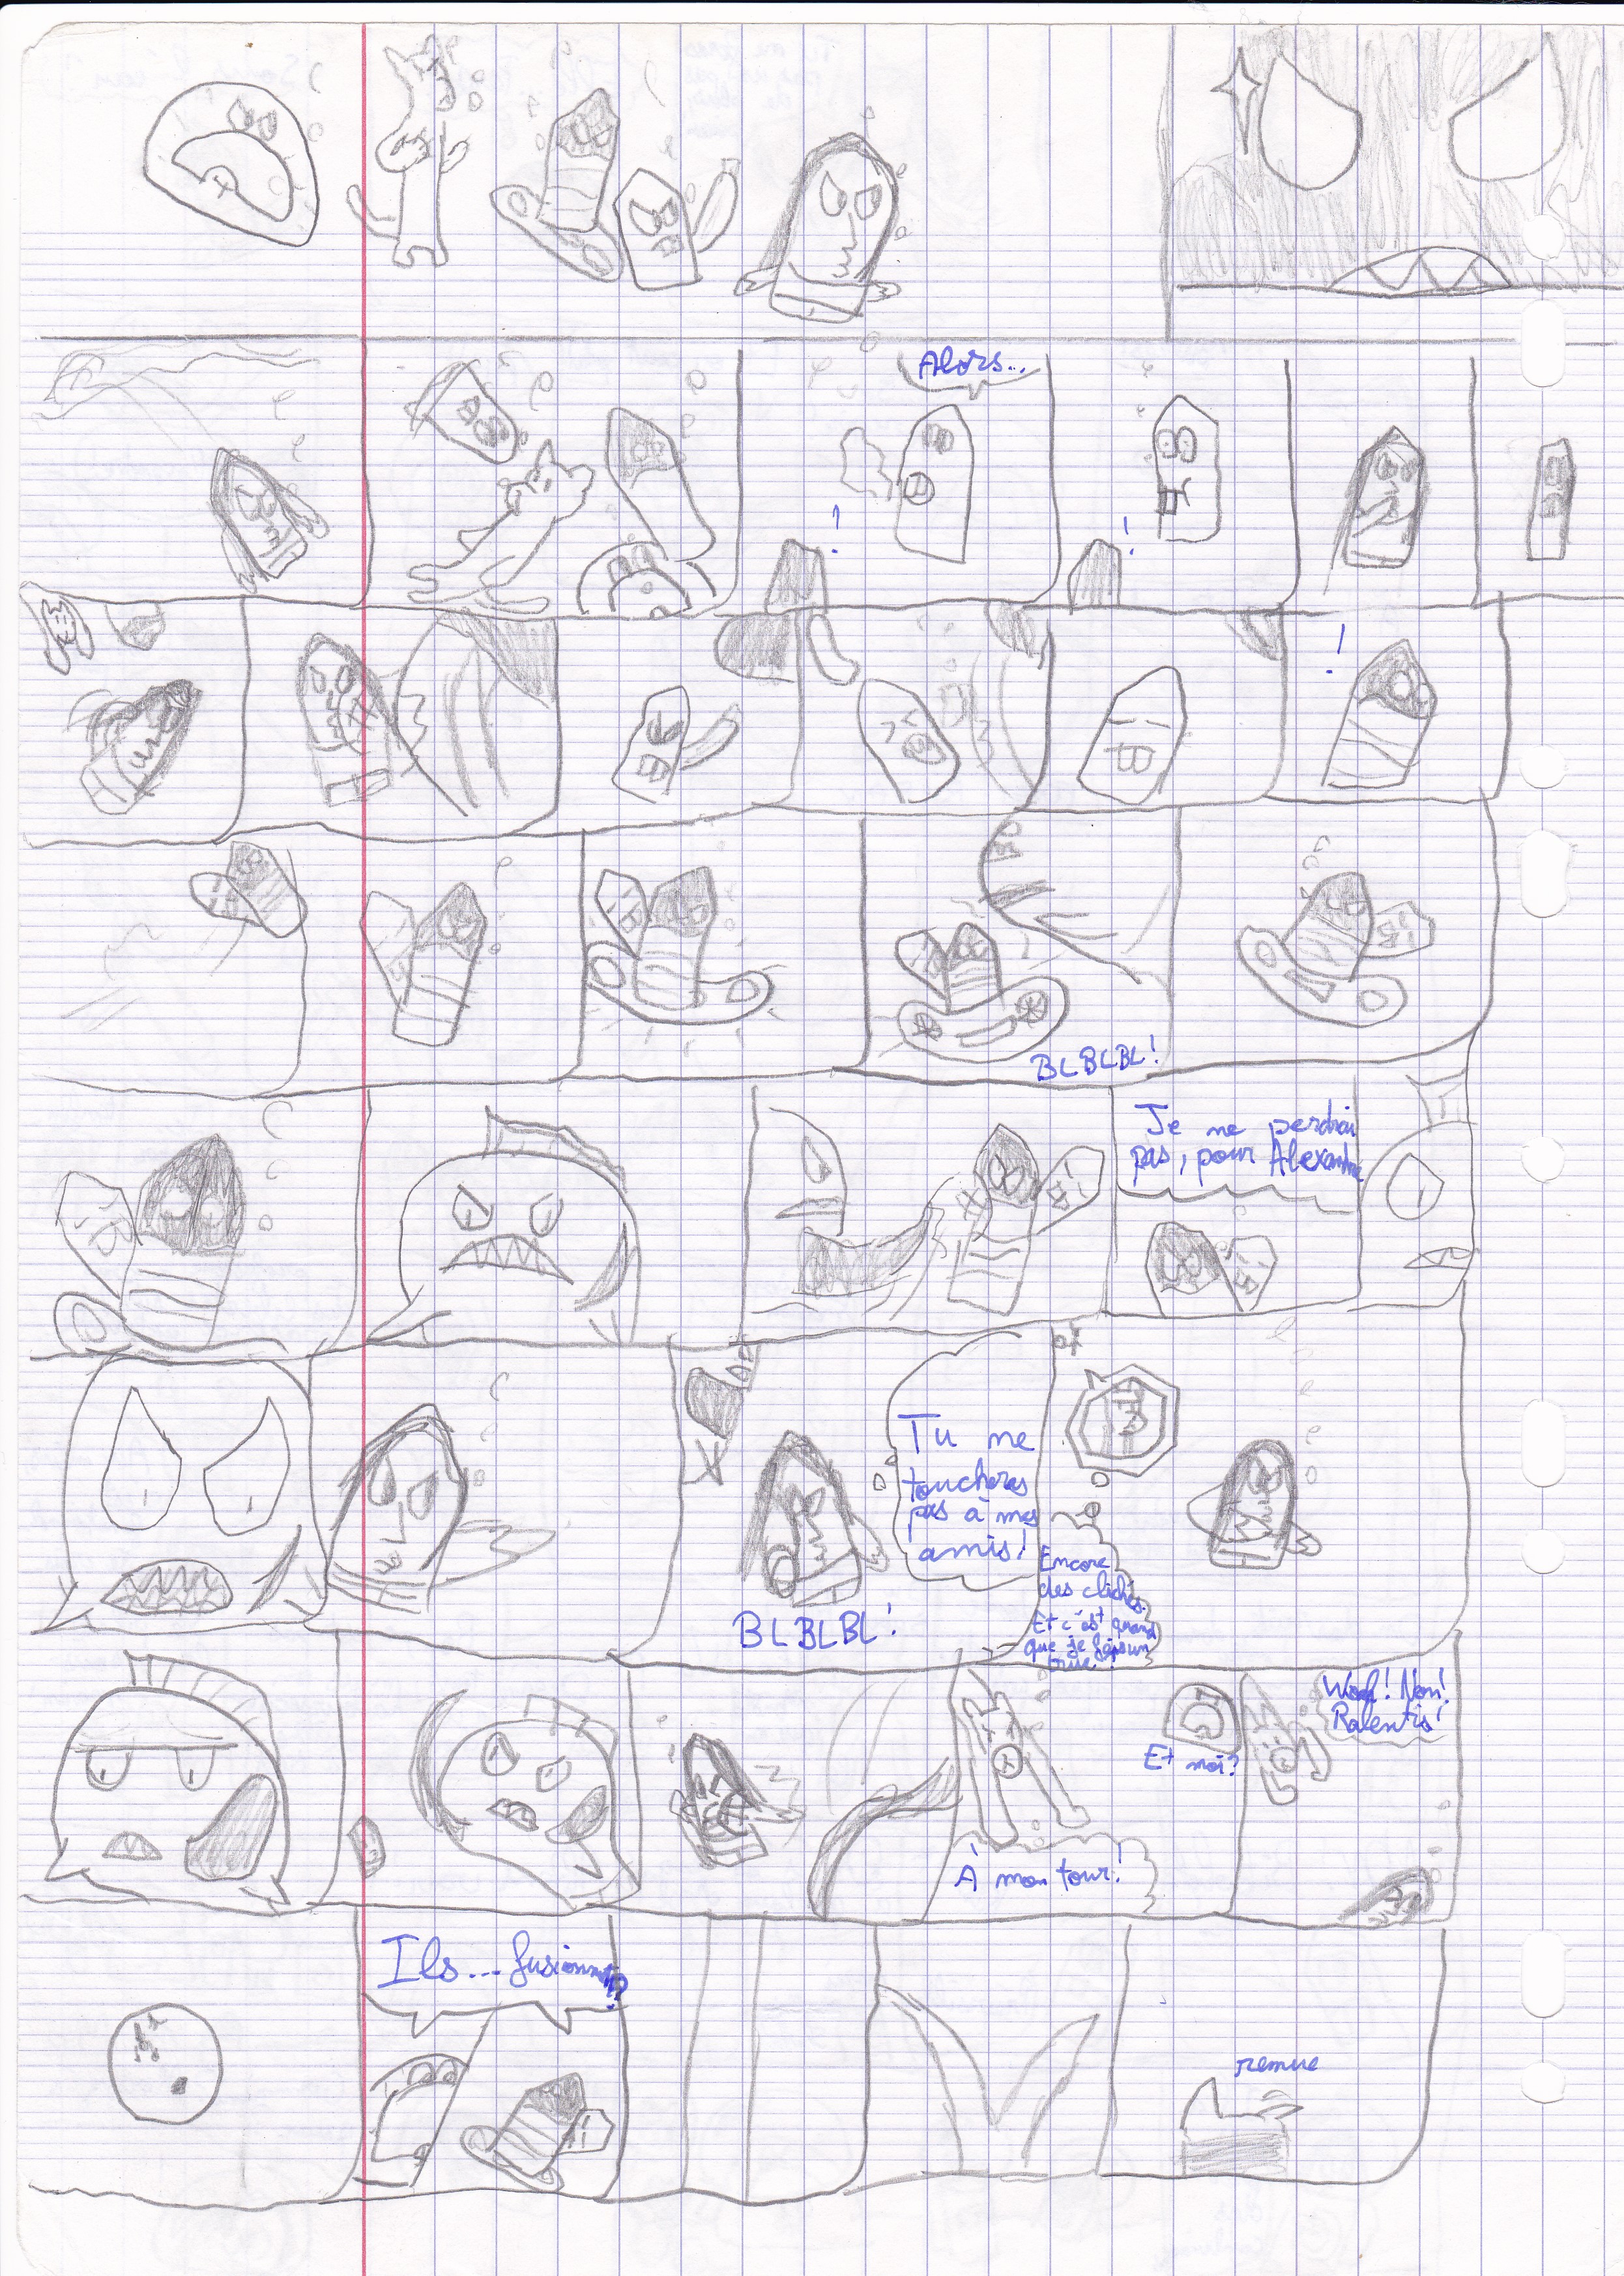 Alors...
!
!
!
BLBLBL!
Je ne perdrai
pas, pour Alexandre
Tu me
toucheras
pas à mes
amis!
BLBLBL!
Encore
des clichés.
Et c'est quand
que je fais un
truc!
À mon tour!
Et moi?
Wouf! Non!
Ralentis!
Ils... fusionnent?
remue